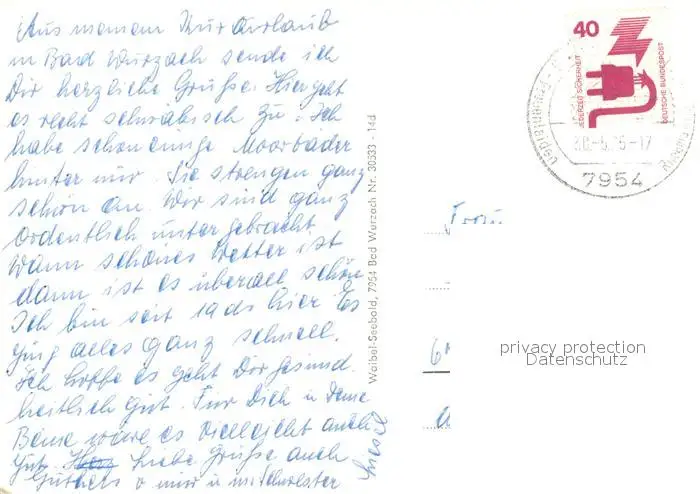 Aus meinem Kururlaub
in Bad Wurzach sende ich
Dir herzliche Grüße. Hier geht
es recht schwäbisch zu. Ich
habe schon einige Moorbäder
hinter mir. Sie strengen ganz
schön an. Wir sind ganz
ordentlich untergebracht.
Wann schönes Wetter ist
dann ist es überall schön
Ich bin seit hier Es
ging alles ganz schnell.
Ich hoffe es geht Dir gesund
heitlich gut. Für Dich u Deine
Beine wäre es vielleicht auch
gut Liebe Grüße auch
v mir u m. Schwester
Liesel
Waibel-Seebold, 7954 Bad Wurzach Nr. 30533 - 14d
40
JEDERZEIT SICHERHEIT
DEUTSCHE BUNDESPOST
7954
Frau
privacy protection
Datenschutz